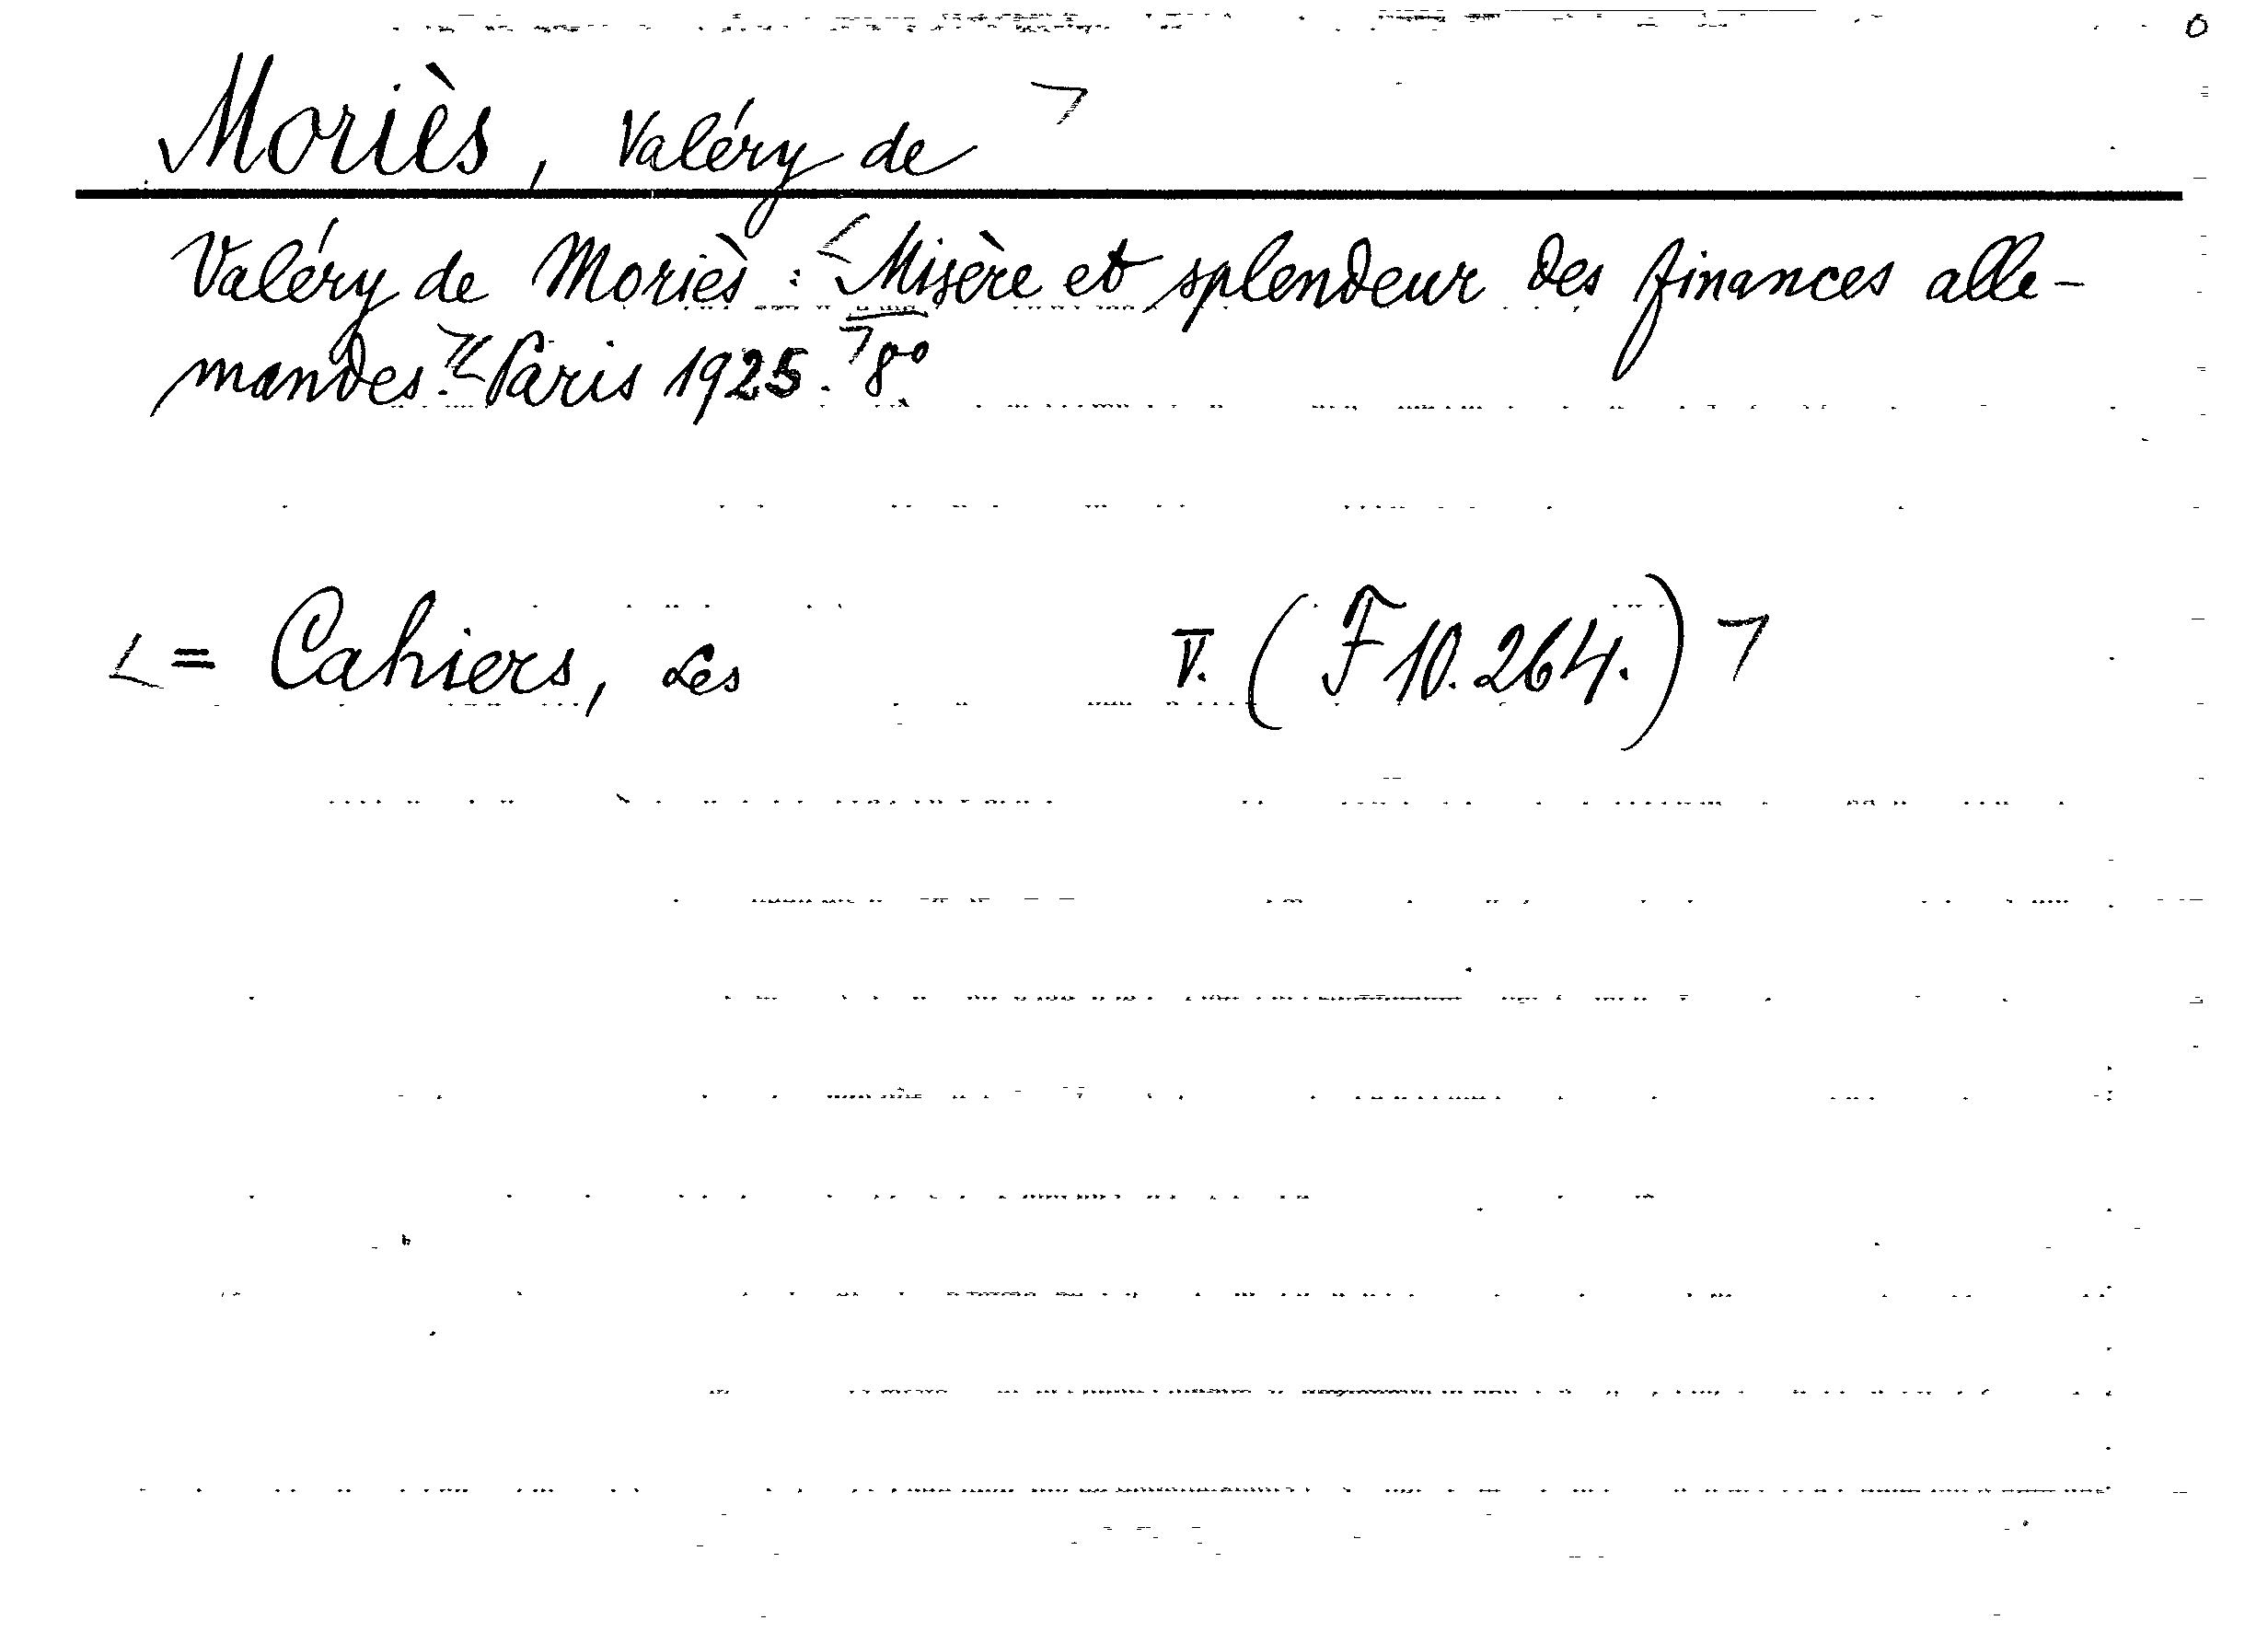 Moriès, Valéry de
Valéry de Moriès: Misère et splendeur des finances alle-
mandes. Paris 1925. 8°
= Cahiers, Les V. (F 10.264.)